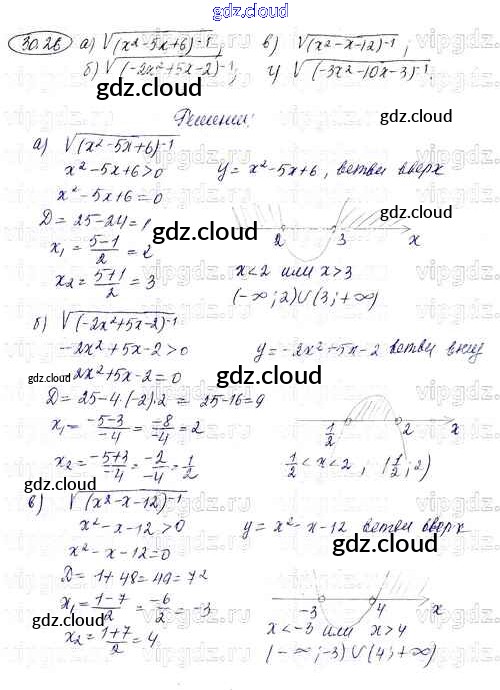 gdz.cloud
30.26 а) √(x²-5x+6)⁻¹ ; в) √(x²-x-12)⁻¹ ;
б) √(-2x²+5x-2)⁻¹ ; г) √(-3x²-10x-3)⁻¹ .
gdz.cloud
gdz.cloud
Решение:
а) √(x²-5x+6)⁻¹
x²-5x+6>0 y = x²-5x+6, ветви вверх
x²-5x+6=0
D = 25-24=1
x₁ = (5-1)/2 = 2
gdz.cloud
2 3 x
x₂ = (5+1)/2 = 3 x<2 или x>3
(-∞;2)∪(3;+∞)
б) √(-2x²+5x-2)⁻¹
-2x²+5x-2>0 y=-2x²+5x-2 ветви вниз
-2x²+5x-2=0
gdz.cloud
gdz.cloud
D = 25-4·(-2)·2 = 25-16=9
x₁ = (-5-3)/-4 = -8/-4 = 2
1/2 2 x
x₂ = (-5+3)/-4 = -2/-4 = 1/2 1/2<x<2, (1/2; 2)
gdz.cloud
gdz.cloud
в) √(x²-x-12)⁻¹
x²-x-12>0 y = x²-x-12 ветви вверх
x²-x-12=0
gdz.cloud
D = 1+48=49=7²
x₁ = (1-7)/2 = -6/2 = -3
-3 4 x
gdz.cloud
x₂ = (1+7)/2 = 4 x<-3 или x>4
(-∞;-3)∪(4;+∞)
gdz.cloud